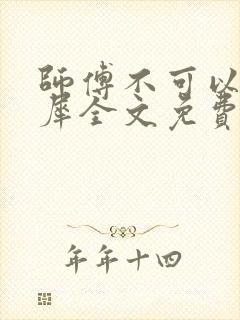 師傅不可以
犀全文免費
年年十四